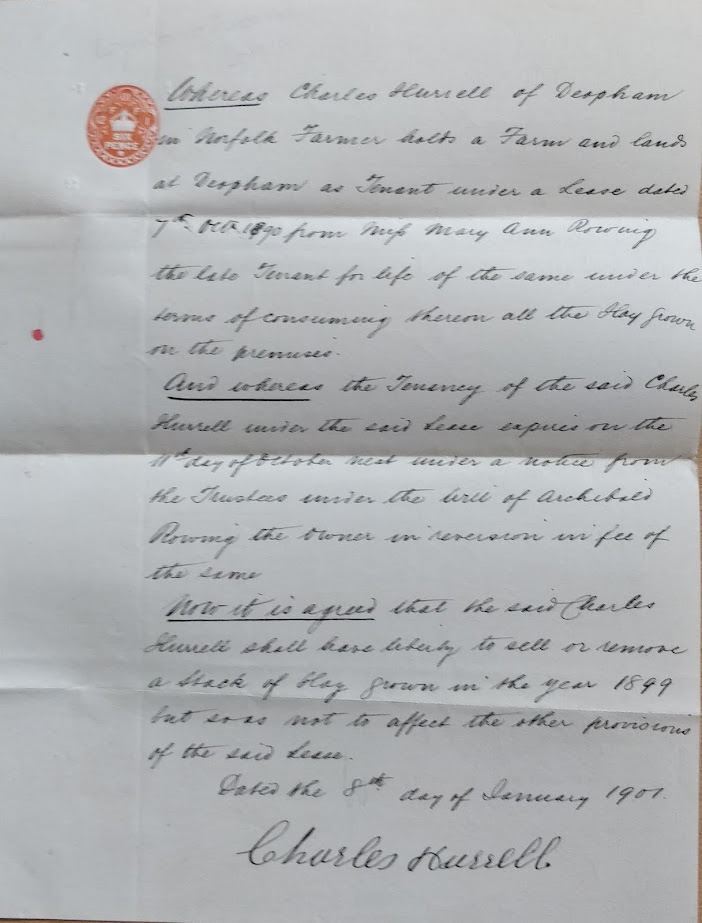 Whereas Charles Hurrell of Deopham
SIX
PENCE
in Norfolk Farmer holds a Farm and lands
at Deopham as Tenant under a Lease dated
7th Octr 1890 from Miss Mary Ann Rowing
the late Tenant for life of the same under the
terms of consuming thereon all the Hay grown
on the premises.
And whereas the Tenancy of the said Charles
Hurrell under the said Lease expires on the
11th day of October next under a notice from
the Trustees under the Will of Archibald
Rowing the Owner in reversion in fee of
the same
Now it is agreed that the said Charles
Hurrell shall have liberty to sell or remove
a Stack of Hay grown in the year 1899
but so as not to affect the other provisions
of the said Lease.
Dated the 8th day of January 1901.
Charles Hurrell